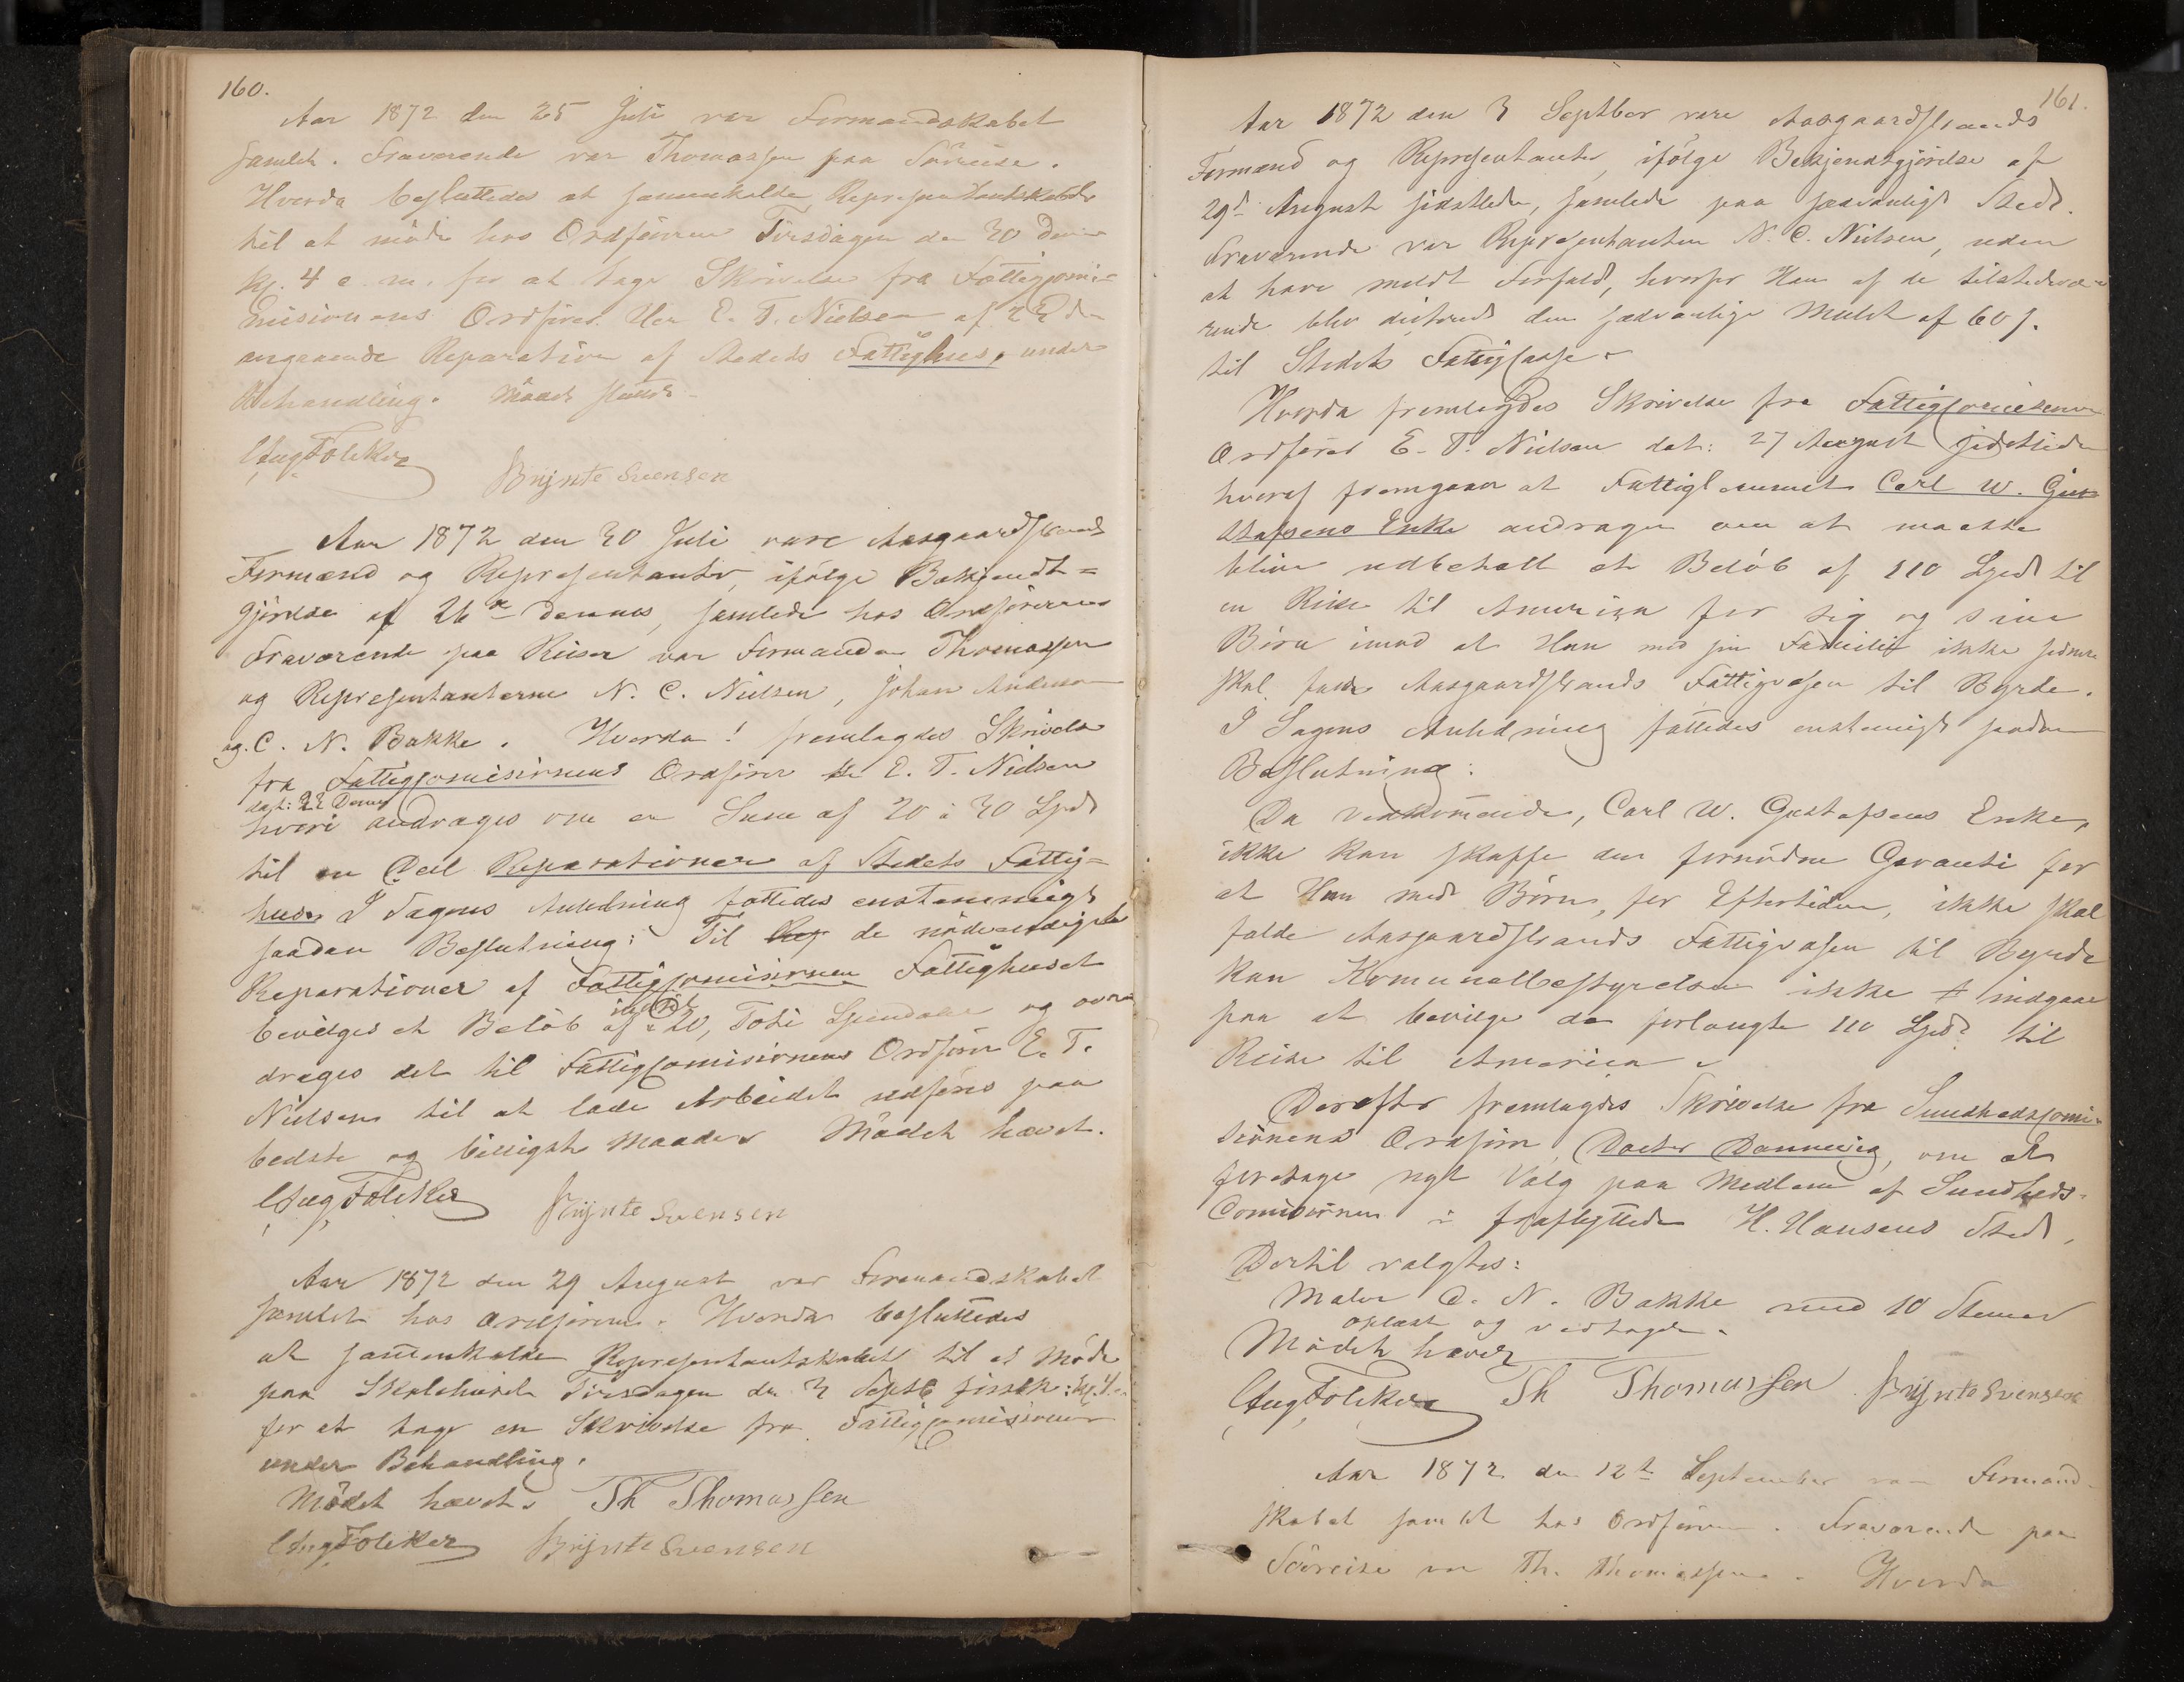 160.
Aar 1872 den 25 Juli var Formandskabet
samlet. Fraværende var Thomassen paa Söreise.
Hvorda besluttedes at sammenkalde Repræsentantskabet
til at möde hos Ordföreren Tirsdagen den 30 dennes
Kl. 4 e. m. for at tage Skrivelse fra Fattigcomi-
misionens Ordförer Hr E. T. Nielsen af 22 ds
angaaende Reparation af Stedets Fattighus, under
Behandling. Mödet sluttet
CAug Folcker
Brynte Svensen
Aar 1872 den 30 Juli vare Aasgaardstrands
Formænd og Repræsentanter, ifölge Bekjendt=
gjörelse af 26de dennes, samlede hos Ordföreren
Fraværende paa Reiser var Formanden Thomassen
og Repræsentanterne N. C. Nielsen, Johan Andersen
og C. N. Bakke. Hvorda! fremlagdes Skrivelse
fra Fattigcomisionens Ordförer Hr E. T. Nielsen
dat: 22 Dennes
hvori andrages om en Sum af 20 à 30 Spd
til en Deel Reparationer af Stedets Fattig=
hus. I Sagens Anledning fattedes enstemmigt
saadan Beslutning: Til Rep de nödvendigste
Reparationer af Fattigcomisionen Fattighuset
indtil
bevilges et Belöb af 20, Toti Speciedaler og over
drages det til Fattigcomisionens Ordförer E. T.
Nielsen til at lade Arbeidet udföres paa
bedste og billigste Maade. Mödet hævet.
CAug Folcker
Brynte Svensen
Aar 1872 den 29 August var Formandskabet
samlet hos Ordföreren. Hvorda besluttedes
at sammenkalde Repræsentantskabet til et Möde
paa Skolehuset Tirsdagen den 3 Septb förstk: Kl. 4
for at tage en Skrivelse fra Fattigcomisionen
under Behandling.
Mödet hævet. Th Thomassen
CAug Folcker Brynte Svensen
161.
Aar 1872 den 3 Septbер vare Aasgaardstrands
Formænd og Repræsentanter, ifölge Bekjendtgjörelse af
29de August sidstleden, samlede paa sædvanligt Sted.
Fraværende var Repræsentanten N. C. Nielsen, uden
at have meldt Forfald, hvorfor Han af de tilstedevæ-
rende blev dicteret den sædvanlige Mulct af 60 s.
til Stedets Fattigcasse.
Hvorda fremlagdes Skrivelse fra Fattigcomisionens
Ordförer E. T. Nielsen dat: 27 August sidstleden
hvoraf fremgaar at Fattiglemmet Carl W. Gus-
tafsens Enke andrager om at maatte
blive udbetalt et Belöb af 110 Spd til
en Reise til Amerika for sig og sine
Börn imod at Hun med sin Familie ikke senere
skal falde Aasgaardstrands Fattigvæsen til Byrde.
I Sagens Anledning fattedes enstemigt saadan
Beslutning:
Da Vedkommende, Carl W. Gustafsens Enke,
ikke kan skaffe den fornödne Garanti for
at Hun med Börn, for Eftertiden, ikke skal
falde Aasgaardstrands Fattigvæsen til Byrde
kan Komunalbestyrelsen ikke indgaae
paa at bevilge de forlangte 110 Spd til
Reise til America.
Derefter fremlagdes Skrivelse fra Sundhedscomi-
sionens Ordförer, Doctor Dannevig, om at
foretage nyt Valg paa Medlem af Sundheds-
Comisionen i fraflyttede H. Hansens Sted,
Dertil valgtes:
Maler C. N. Bakke med 10 Stemmer
oplæst og vedtaget.
Mödet hævet
CAug Folcker Th Thomassen Brynte Svensen
Aar 1872 den 12te September var Formand-
skabet samlet hos Ordföreren. Fraværende paa
Söreise var Th. Thomassen. Hvorda